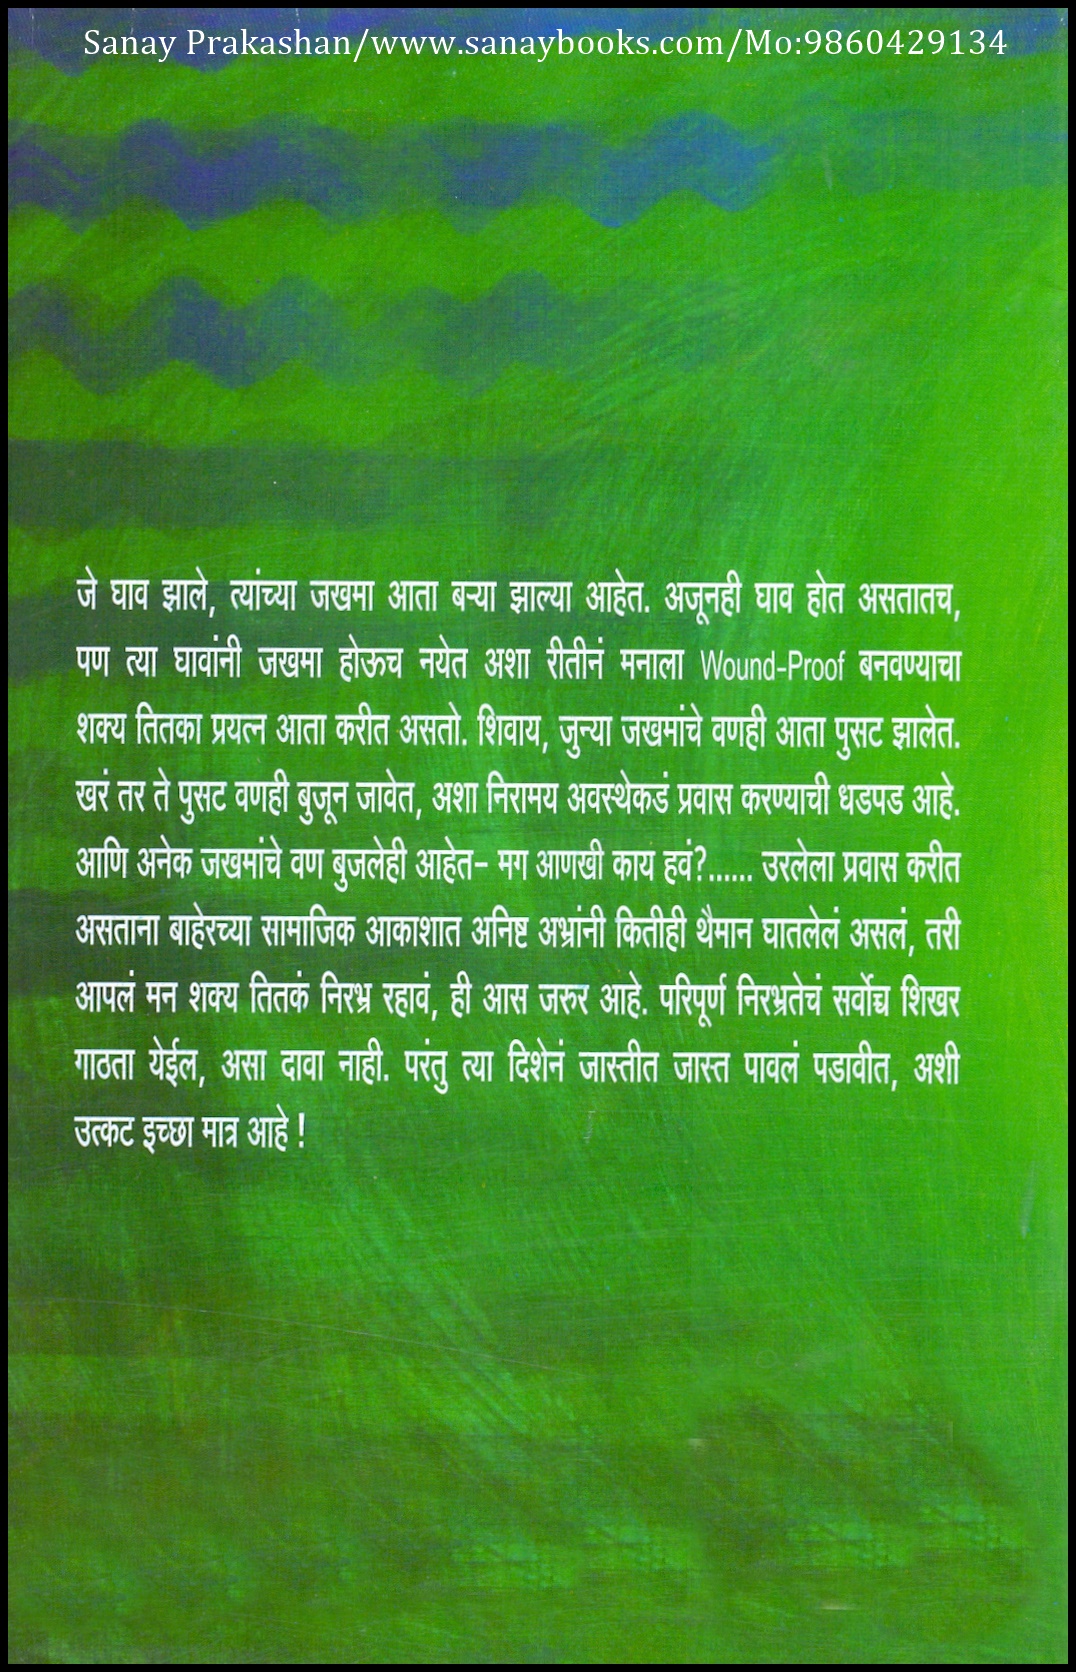 Sanay Prakashan/www.sanaybooks.com/Mo:9860429134
जे घाव झाले, त्यांच्या जखमा आता बऱ्या झाल्या आहेत. अजूनही घाव होत असतातच,
पण त्या घावांनी जखमा होऊच नयेत अशा रीतीनं मनाला Wound-Proof बनवण्याचा
शक्य तितका प्रयत्न आता करीत असतो. शिवाय, जुन्या जखमांचे वणही आता पुसट झालेत.
खरं तर ते पुसट वणही बुजून जावेत, अशा निरामय अवस्थेकडं प्रवास करण्याची धडपड आहे.
आणि अनेक जखमांचे वण बुजलेही आहेत- मग आणखी काय हवं?...... उरलेला प्रवास करीत
असताना बाहेरच्या सामाजिक आकाशात अनिष्ट अभ्रांनी कितीही थैमान घातलेलं असलं, तरी
आपलं मन शक्य तितकं निरभ्र रहावं, ही आस जरुर आहे. परिपूर्ण निरभ्रतेचं सर्वोच्च शिखर
गाठता येईल, असा दावा नाही. परंतु त्या दिशेनं जास्तीत जास्त पावलं पडावीत, अशी
उत्कट इच्छा मात्र आहे !